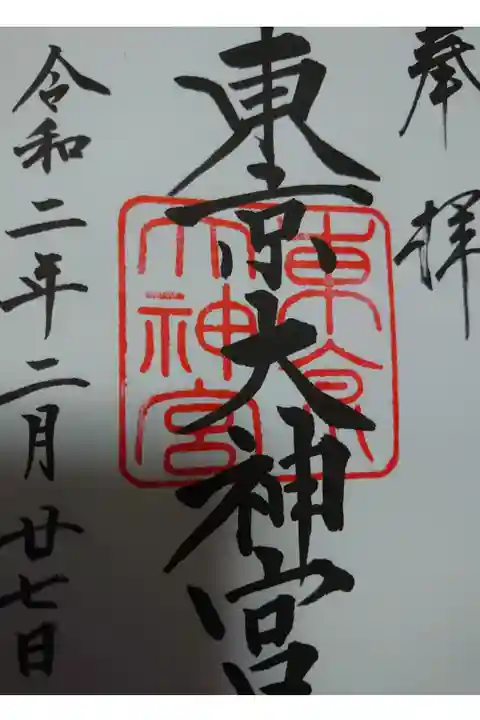 奉拝
東京大神宮
東京大神宮
令和二年二月廿七日